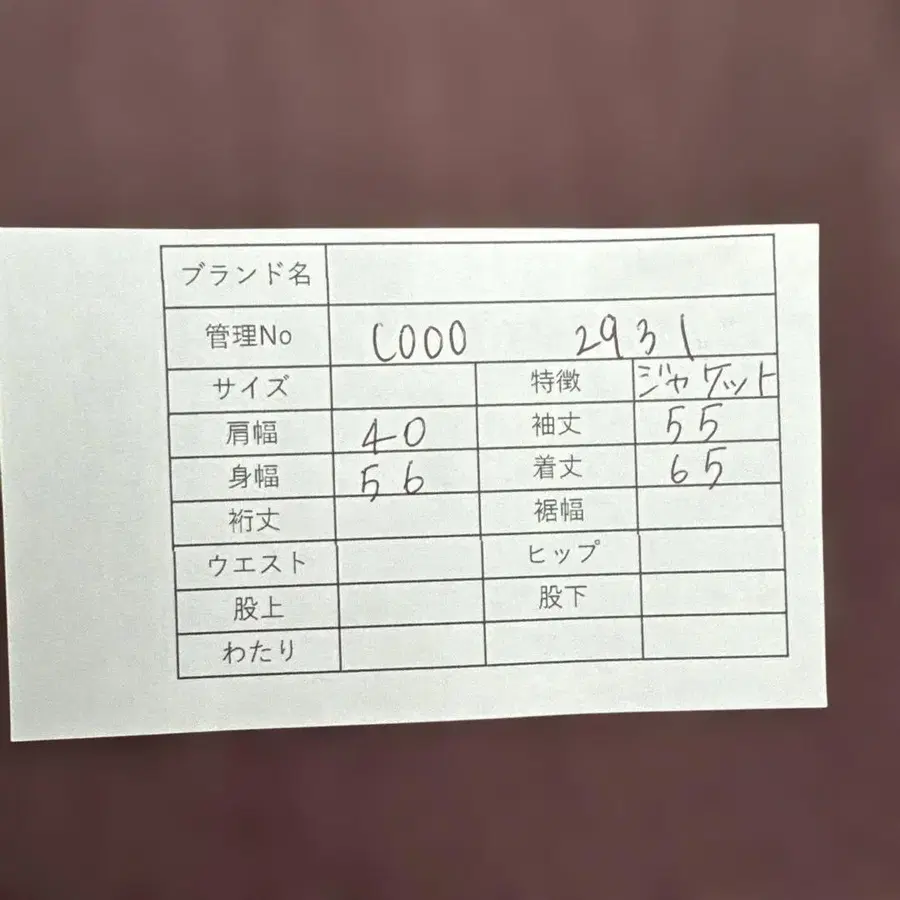 ブランド名
管理No C000 2931
サイズ 特徴 ジャケット
肩幅 40 袖丈 55
身幅 56 着丈 65
裄丈 裾幅
ウエスト ヒップ
股上 股下
わたり